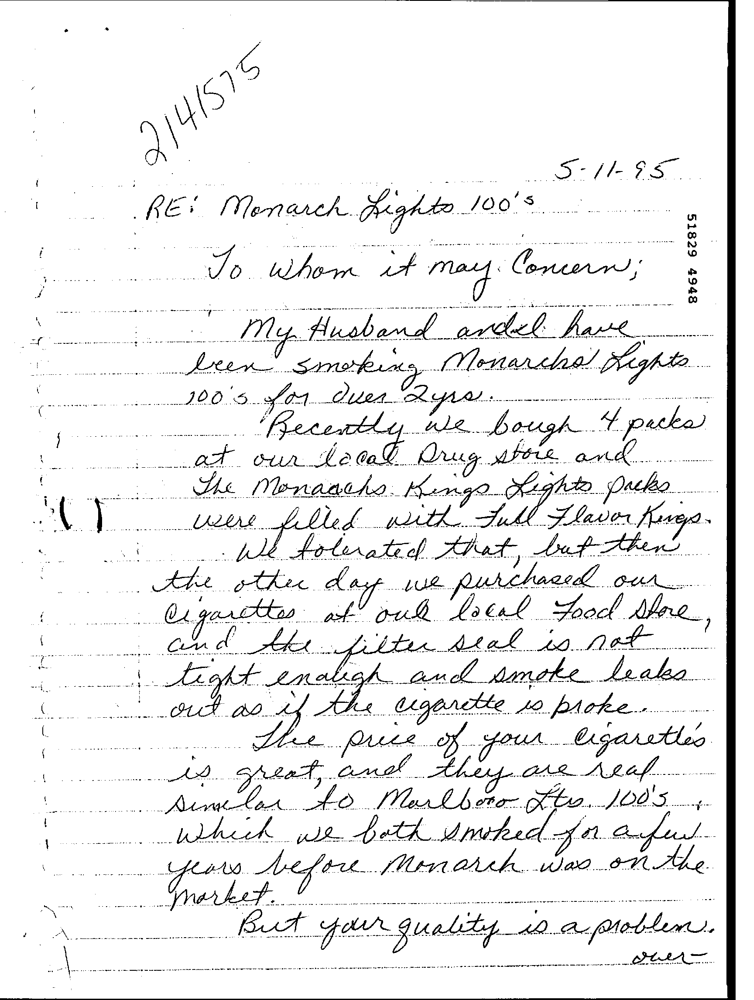 2141575
5-11-95
RE: Monarch Lights 100's
51829 4948
To whom it may Concern;
My Husband and I have
been smoking Monarchs Lights
100's for over 2yrs.
Recently we bough 4 packs
at our local Drug store and
The Monarchs Kings Lights packs
were filled with Full Flavor Kings.
We tolerated that, but then
the other day we purchased our
Cigarettes at our local Food Store,
and the filter seal is not
tight enough and smoke leaks
out as if the cigarette is broke.
The price of your Cigarette's
is great, and they are real
similar to Marlboro Lts. 100's,
which we both smoked for a few
years before Monarch was on the
market.
But your quality is a problem.
over-